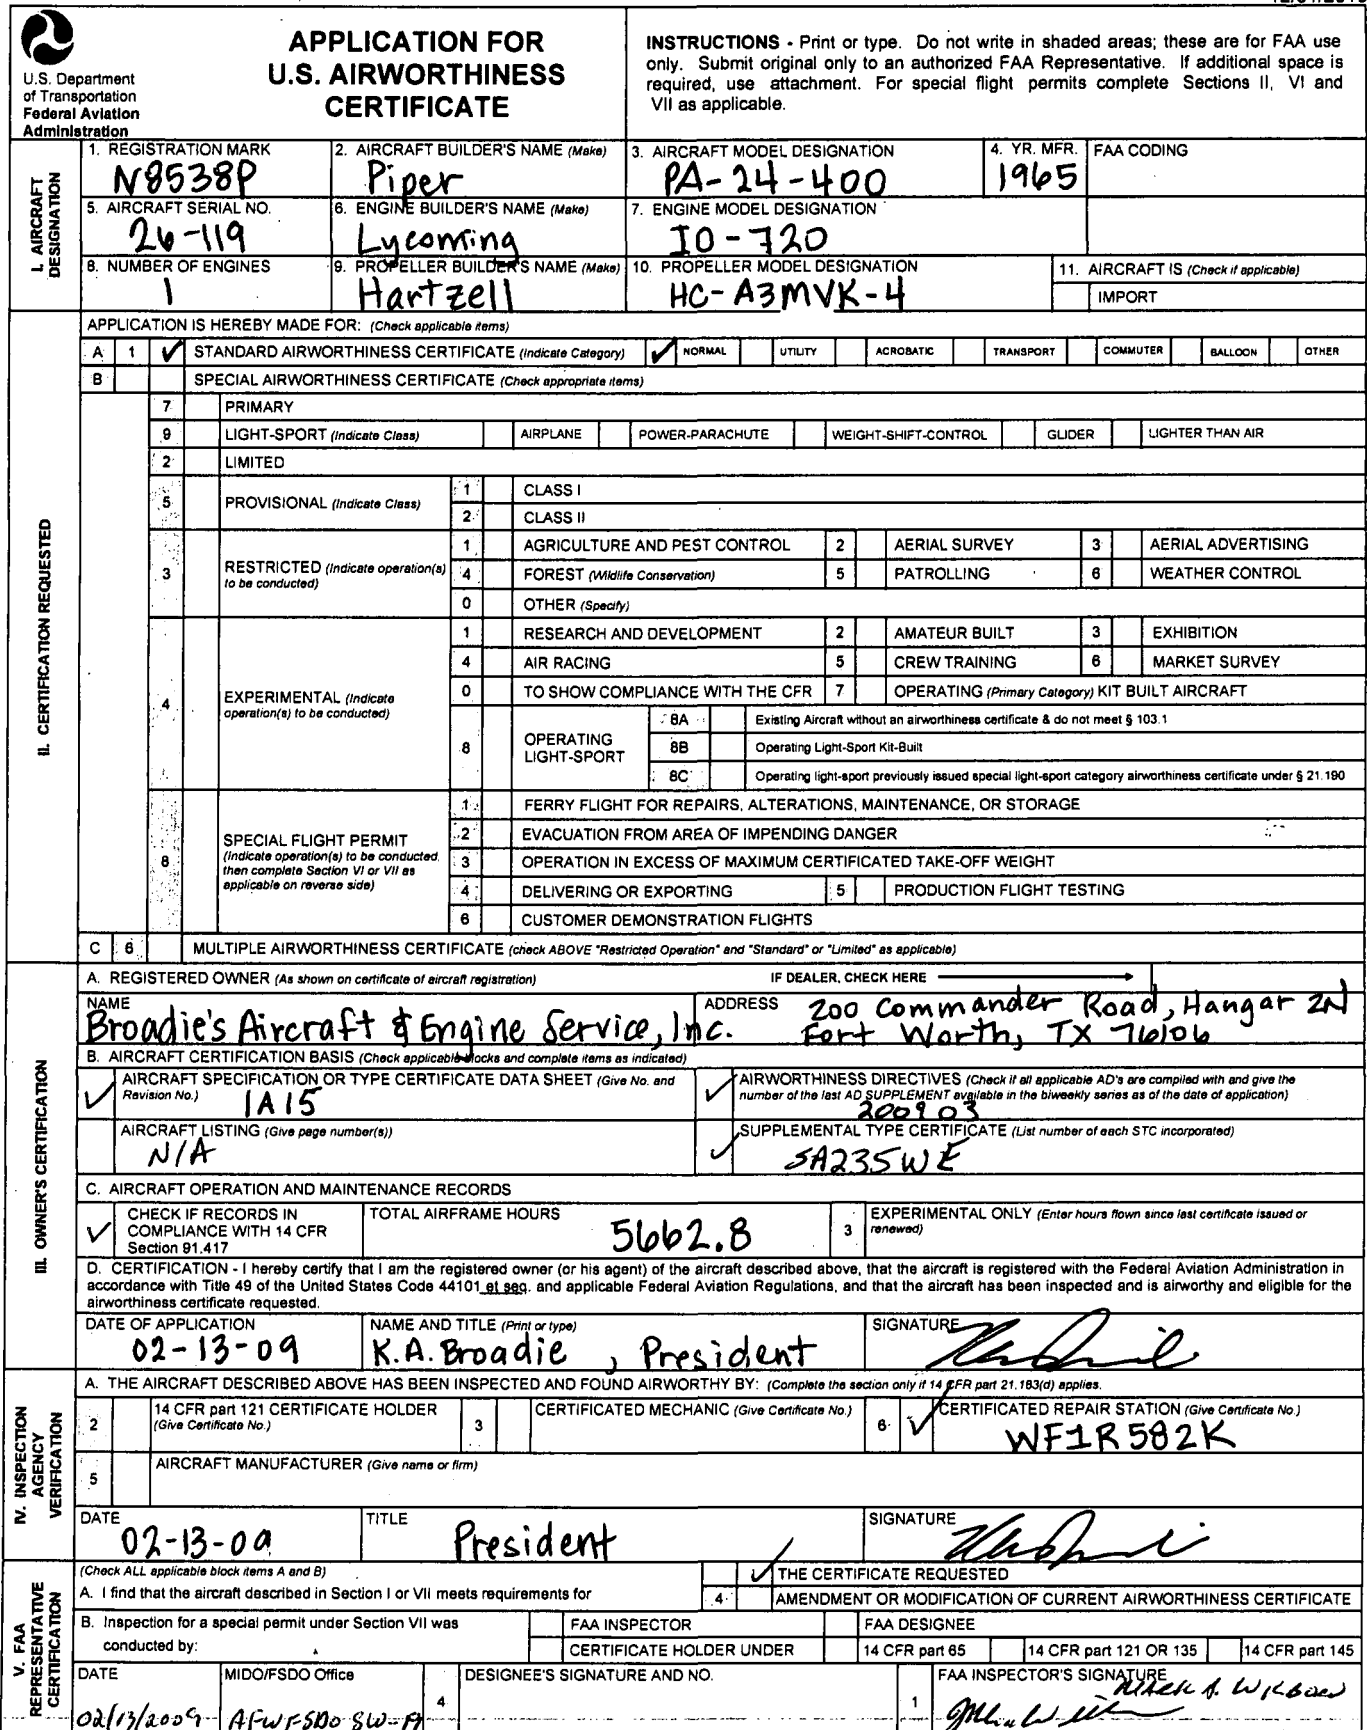 U.S. Department
of Transportation
Federal Aviation
Administration
APPLICATION FOR
U.S. AIRWORTHINESS
CERTIFICATE
INSTRUCTIONS - Print or type. Do not write in shaded areas; these are for FAA use
only. Submit original only to an authorized FAA Representative. If additional space is
required, use attachment. For special flight permits complete Sections II, VI and
VII as applicable.
I. AIRCRAFT
DESIGNATION
1. REGISTRATION MARK
N8538P
2. AIRCRAFT BUILDER'S NAME (Make)
Piper
3. AIRCRAFT MODEL DESIGNATION
PA-24-400
4. YR. MFR.
1965
FAA CODING
5. AIRCRAFT SERIAL NO.
26-119
6. ENGINE BUILDER'S NAME (Make)
Lycoming
7. ENGINE MODEL DESIGNATION
IO-720
8. NUMBER OF ENGINES
1
9. PROPELLER BUILDER'S NAME (Make)
Hartzell
10. PROPELLER MODEL DESIGNATION
HC-A3MVK-4
11. AIRCRAFT IS (Check if applicable)
IMPORT
II. CERTIFICATION REQUESTED
APPLICATION IS HEREBY MADE FOR: (Check applicable items)
A 1 ✓ STANDARD AIRWORTHINESS CERTIFICATE (Indicate Category) ✓ NORMAL UTILITY ACROBATIC TRANSPORT COMMUTER BALLOON OTHER
B SPECIAL AIRWORTHINESS CERTIFICATE (Check appropriate items)
7 PRIMARY
9 LIGHT-SPORT (Indicate Class) AIRPLANE POWER-PARACHUTE WEIGHT-SHIFT-CONTROL GLIDER LIGHTER THAN AIR
2 LIMITED
5 PROVISIONAL (Indicate Class)
1 CLASS I
2 CLASS II
3 RESTRICTED (Indicate operation(s)
to be conducted)
1 AGRICULTURE AND PEST CONTROL 2 AERIAL SURVEY 3 AERIAL ADVERTISING
4 FOREST (Wildlife Conservation) 5 PATROLLING 6 WEATHER CONTROL
0 OTHER (Specify)
4 EXPERIMENTAL (Indicate
operation(s) to be conducted)
1 RESEARCH AND DEVELOPMENT 2 AMATEUR BUILT 3 EXHIBITION
4 AIR RACING 5 CREW TRAINING 6 MARKET SURVEY
0 TO SHOW COMPLIANCE WITH THE CFR 7 OPERATING (Primary Category) KIT BUILT AIRCRAFT
8 OPERATING
LIGHT-SPORT
8A Existing Aircraft without an airworthiness certificate & do not meet § 103.1
8B Operating Light-Sport Kit-Built
8C Operating light-sport previously issued special light-sport category airworthiness certificate under § 21.190
8 SPECIAL FLIGHT PERMIT
(Indicate operation(s) to be conducted
then complete Section VI or VII as
applicable on reverse side)
1 FERRY FLIGHT FOR REPAIRS, ALTERATIONS, MAINTENANCE, OR STORAGE
2 EVACUATION FROM AREA OF IMPENDING DANGER
3 OPERATION IN EXCESS OF MAXIMUM CERTIFICATED TAKE-OFF WEIGHT
4 DELIVERING OR EXPORTING 5 PRODUCTION FLIGHT TESTING
6 CUSTOMER DEMONSTRATION FLIGHTS
C 6 MULTIPLE AIRWORTHINESS CERTIFICATE (check ABOVE "Restricted Operation" and "Standard" or "Limited" as applicable)
III. OWNER'S CERTIFICATION
A. REGISTERED OWNER (As shown on certificate of aircraft registration) IF DEALER, CHECK HERE
NAME
Broadie's Aircraft & Engine Service, Inc.
ADDRESS 200 Commander Road, Hangar 2N
Fort Worth, TX 76106
B. AIRCRAFT CERTIFICATION BASIS (Check applicable blocks and complete items as indicated)
✓ AIRCRAFT SPECIFICATION OR TYPE CERTIFICATE DATA SHEET (Give No. and
Revision No.) 1A15
✓ AIRWORTHINESS DIRECTIVES (Check if all applicable AD's are complied with and give the
number of the last AD SUPPLEMENT available in the biweekly series as of the date of application)
200903
AIRCRAFT LISTING (Give page number(s))
N/A
✓ SUPPLEMENTAL TYPE CERTIFICATE (List number of each STC incorporated)
SA235WE
C. AIRCRAFT OPERATION AND MAINTENANCE RECORDS
✓ CHECK IF RECORDS IN
COMPLIANCE WITH 14 CFR
Section 91.417
TOTAL AIRFRAME HOURS
5662.8
3 EXPERIMENTAL ONLY (Enter hours flown since last certificate issued or
renewed)
D. CERTIFICATION - I hereby certify that I am the registered owner (or his agent) of the aircraft described above, that the aircraft is registered with the Federal Aviation Administration in
accordance with Title 49 of the United States Code 44101 et seq. and applicable Federal Aviation Regulations, and that the aircraft has been inspected and is airworthy and eligible for the
airworthiness certificate requested.
DATE OF APPLICATION
02-13-09
NAME AND TITLE (Print or type)
K.A. Broadie, President
SIGNATURE
IV. INSPECTION
AGENCY
VERIFICATION
A. THE AIRCRAFT DESCRIBED ABOVE HAS BEEN INSPECTED AND FOUND AIRWORTHY BY: (Complete the section only if 14 CFR part 21.183(d) applies.
2 14 CFR part 121 CERTIFICATE HOLDER
(Give Certificate No.)
3 CERTIFICATED MECHANIC (Give Certificate No.)
6 ✓ CERTIFICATED REPAIR STATION (Give Certificate No.)
WF1R582K
5 AIRCRAFT MANUFACTURER (Give name or firm)
DATE
02-13-09
TITLE
President
SIGNATURE
V. FAA
REPRESENTATIVE
CERTIFICATION
(Check ALL applicable block items A and B)
A. I find that the aircraft described in Section I or VII meets requirements for
✓ THE CERTIFICATE REQUESTED
4 AMENDMENT OR MODIFICATION OF CURRENT AIRWORTHINESS CERTIFICATE
B. Inspection for a special permit under Section VII was
conducted by:
FAA INSPECTOR FAA DESIGNEE
CERTIFICATE HOLDER UNDER 14 CFR part 65 14 CFR part 121 OR 135 14 CFR part 145
DATE
02/13/2009
MIDO/FSDO Office
AFWFSDO SW-19
4 DESIGNEE'S SIGNATURE AND NO.
1 FAA INSPECTOR'S SIGNATURE